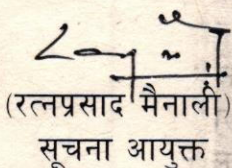 (रत्नप्रसाद मैनाली)
सूचना आयुक्त